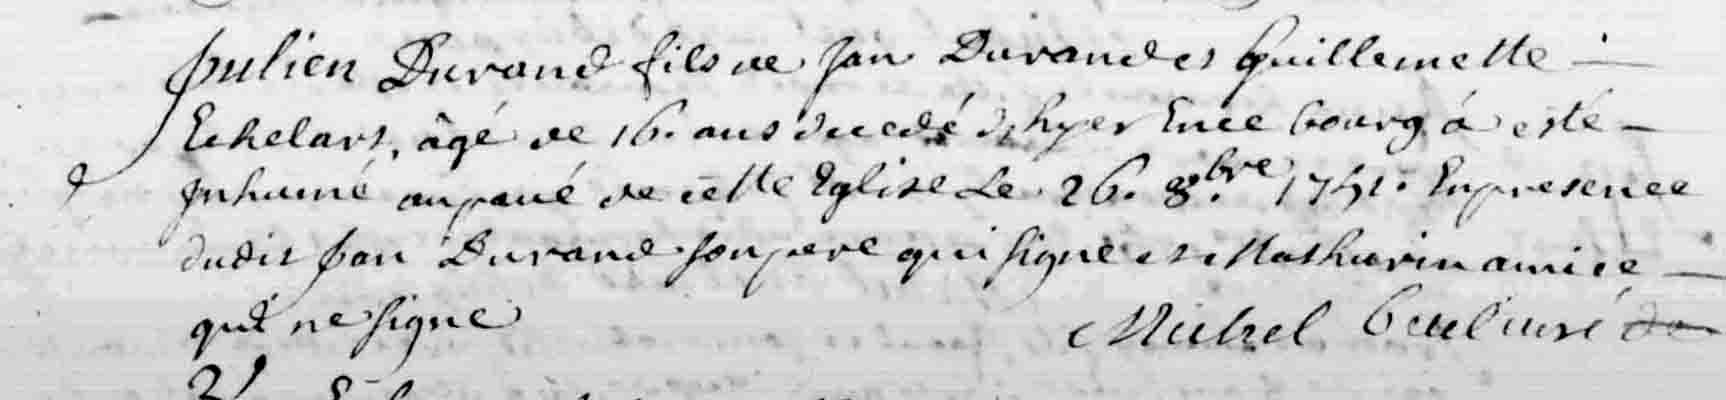 Julien Durand fils de Jan Durand et Guillemette -
Echelart, âgé de 16. ans decedé d'hyer En ce bourg á esté -
Inhumé au pavé de cette Eglise Le 26. 8.bre 1741. En presence
dudit Jan Durand son pere qui signe et Mathurin amice -
qui ne signe Michel